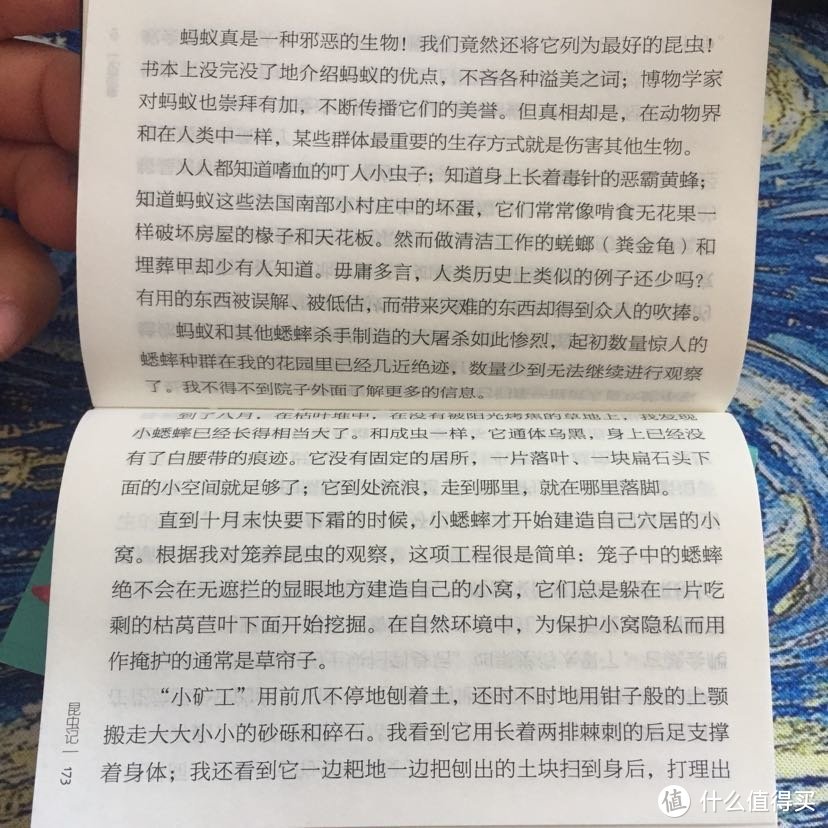 蚂蚁真是一种邪恶的生物！我们竟然还将它列为最好的昆虫！
书本上没完没了地介绍蚂蚁的优点，不吝各种溢美之词；博物学家
对蚂蚁也崇拜有加，不断传播它们的美誉。但真相却是，在动物界
和在人类中一样，某些群体最重要的生存方式就是伤害其他生物。
人人都知道嗜血的叮人小虫子；知道身上长着毒针的恶霸黄蜂；
知道蚂蚁这些法国南部小村庄中的坏蛋，它们常常像啃食无花果一
样破坏房屋的椽子和天花板。然而做清洁工作的蜣螂（粪金龟）和
埋葬甲却少有人知道。毋庸多言，人类历史上类似的例子还少吗？
有用的东西被误解、被低估，而带来灾难的东西却得到众人的吹捧。
蚂蚁和其他蟋蟀杀手制造的大屠杀如此惨烈，起初数量惊人的
蟋蟀种群在我的花园里已经几近绝迹，数量少到无法继续进行观察
了。我不得不到院子外面了解更多的信息。
到了八月，在枯叶堆中，在没有被阳光烤焦的草地上，我发现
小蟋蟀已经长得相当大了。和成虫一样，它通体乌黑，身上已经没
有了白腰带的痕迹。它没有固定的居所，一片落叶、一块扁石头下
面的小空间就足够了；它到处流浪，走到哪里，就在哪里落脚。
直到十月末快要下霜的时候，小蟋蟀才开始建造自己穴居的小
窝。根据我对笼养昆虫的观察，这项工程很是简单：笼子中的蟋蟀
绝不会在无遮拦的显眼地方建造自己的小窝，它们总是躲在一片吃
剩的枯莴苣叶下面开始挖掘。在自然环境中，为保护小窝隐私而用
作掩护的通常是草帘子。
“小矿工”用前爪不停地刨着土，还时不时地用钳子般的上颚
搬走大大小小的砂砾和碎石。我看到它用长着两排棘刺的后足支撑
着身体；我还看到它一边耙地一边把刨出的土块扫到身后，打理出
昆虫记 | 173
值 什么值得买